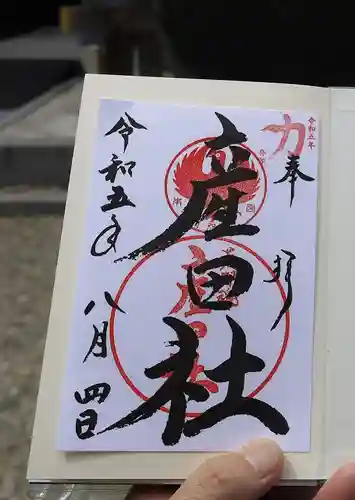 令和五年
力
奉拝
産田社
令和五年
八月四日